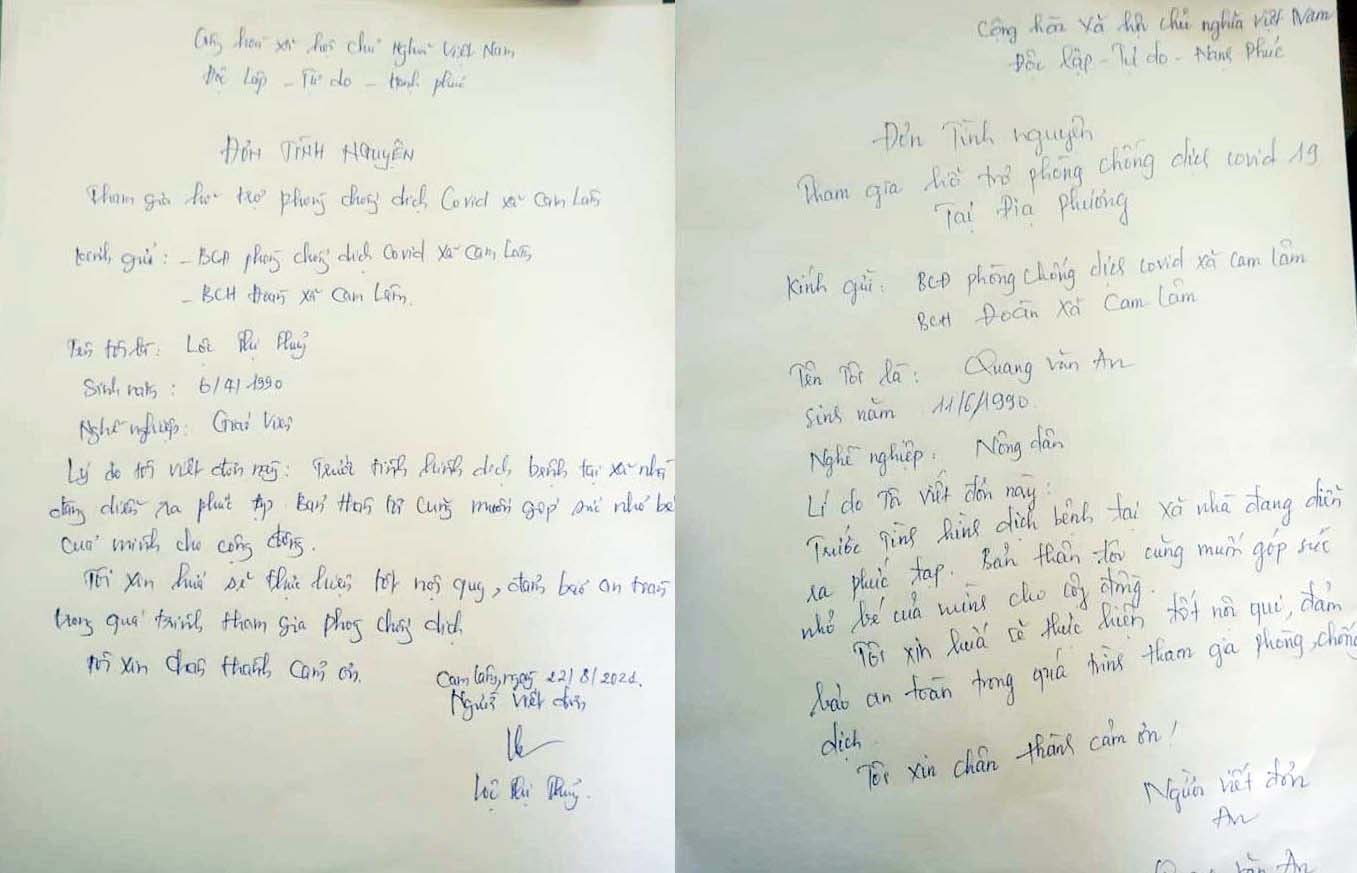 Cộng hoà xã hội chủ nghĩa Việt Nam
Độc Lập - Tự do - Hạnh phúc
ĐƠN TÌNH NGUYỆN
Tham gia hỗ trợ phòng chống dịch Covid xã Cam Lâm
Kính gửi : - BCĐ phòng chống dịch Covid xã Cam Lâm
- BCH Đoàn xã Cam Lâm.
Tên tôi là : Lộc Thị Thuỷ
Sinh năm : 6/4/1990
Nghề nghiệp : Giáo Viên
Lý do tôi viết đơn này : Trước tình hình dịch bệnh tại xã nhà
đang diễn ra phức tạp Bản thân tôi cũng muốn góp sức nhỏ bé
của mình cho cộng đồng.
Tôi xin hứa sẽ thực hiện tốt nội quy, đảm bảo an toàn
trong quá trình tham gia phòng chống dịch
Tôi xin chân thành cảm ơn.
Cam Lâm, ngày 22/8/2021.
Người viết đơn
Lộc Thị Thuỷ.
Cộng hòa xã hội chủ nghĩa Việt Nam
Độc lập - Tự do - Hạnh Phúc
Đơn Tình nguyện
Tham gia hỗ trợ phòng chống dịch covid 19
Tại Địa Phương
Kính gửi : BCĐ phòng chống dịch covid xã Cam Lâm
BCH Đoàn xã Cam Lâm
Tên Tôi là : Quang Văn An
Sinh năm 11/6/1990.
Nghề nghiệp : Nông dân
Lí do Tôi viết đơn này :
Trước tình hình dịch bệnh tại xã nhà đang diễn
ra phức tạp. Bản thân tôi cũng muốn góp sức
nhỏ bé của mình cho cộng đồng.
Tôi xin hứa sẽ thực hiện tốt nội qui, đảm
bảo an toàn trong quá trình tham gia phòng, chống
dịch
Tôi xin chân thành cảm ơn !
Người viết đơn
An
Quang Văn An